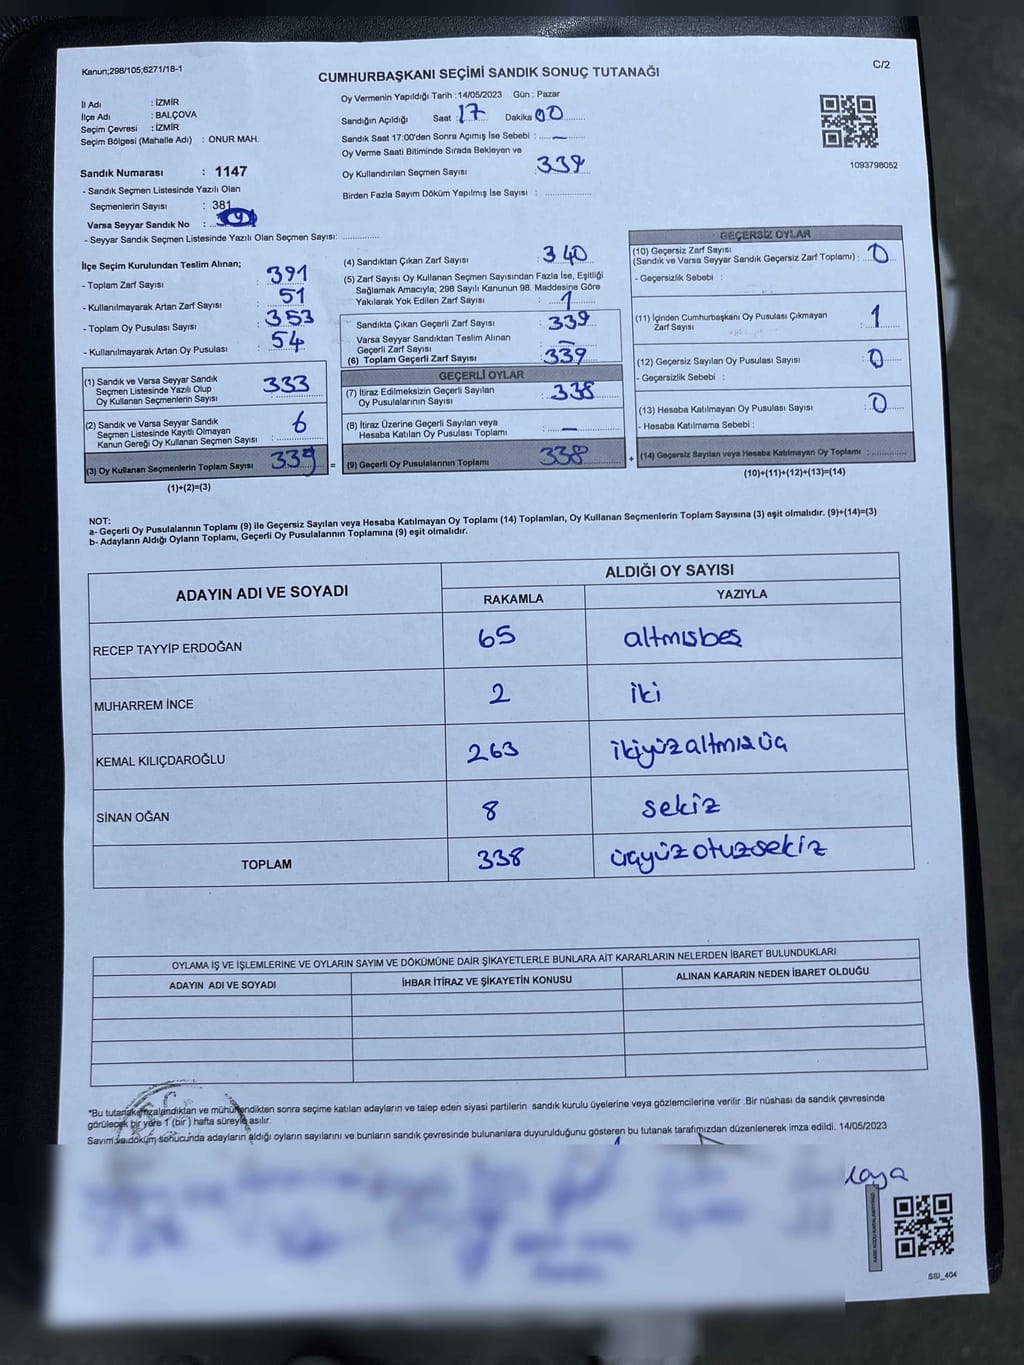 Kanun;298/105;6271/18-1
C/2
CUMHURBAŞKANI SEÇİMİ SANDIK SONUÇ TUTANAĞI
İl Adı : İZMİR
İlçe Adı : BALÇOVA
Seçim Çevresi : İZMİR
Seçim Bölgesi (Mahalle Adı) : ONUR MAH.
Sandık Numarası : 1147
- Sandık Seçmen Listesinde Yazılı Olan
Seçmenlerin Sayısı : 381
Varsa Seyyar Sandık No :
- Seyyar Sandık Seçmen Listesinde Yazılı Olan Seçmen Sayısı: ..............
Oy Vermenin Yapıldığı Tarih : 14/05/2023 Gün : Pazar
Sandığın Açıldığı Saat : 17 Dakika 00
Sandık Saat 17:00'den Sonra Açımış İse Sebebi : —
Oy Verme Saati Bitiminde Sırada Bekleyen ve
Oy Kullandırılan Seçmen Sayısı : 339
Birden Fazla Sayım Döküm Yapılmış İse Sayısı : ..............
1093798052
İlçe Seçim Kurulundan Teslim Alınan;
- Toplam Zarf Sayısı : 391
- Kullanılmayarak Artan Zarf Sayısı : 51
- Toplam Oy Pusulası Sayısı : 353
- Kullanılmayarak Artan Oy Pusulası : 54
(1) Sandık ve Varsa Seyyar Sandık
Seçmen Listesinde Yazılı Olup
Oy Kullanan Seçmenlerin Sayısı : 333
(2) Sandık ve Varsa Seyyar Sandık
Seçmen Listesinde Kayıtlı Olmayan
Kanun Gereği Oy Kullanan Seçmen Sayısı : 6
(3) Oy Kullanan Seçmenlerin Toplam Sayısı 339 =
(1)+(2)=(3)
(4) Sandıktan Çıkan Zarf Sayısı : 340
(5) Zarf Sayısı Oy Kullanan Seçmen Sayısından Fazla İse, Eşitliği
Sağlamak Amacıyla; 298 Sayılı Kanunun 98. Maddesine Göre
Yakılarak Yok Edilen Zarf Sayısı : 1
Sandıkta Çıkan Geçerli Zarf Sayısı : 339
Varsa Seyyar Sandıktan Teslim Alınan
Geçerli Zarf Sayısı : —
(6) Toplam Geçerli Zarf Sayısı : 339
GEÇERLİ OYLAR
(7) İtiraz Edilmeksizin Geçerli Sayılan
Oy Pusulalarının Sayısı : 338
(8) İtiraz Üzerine Geçerli Sayılan veya
Hesaba Katılan Oy Pusulası Toplamı : —
(9) Geçerli Oy Pusulalarının Toplamı 338 +
GEÇERSİZ OYLAR
(10) Geçersiz Zarf Sayısı
(Sandık ve Varsa Seyyar Sandık Geçersiz Zarf Toplamı) : 0
- Geçersizlik Sebebi :
(11) İçinden Cumhurbaşkanı Oy Pusulası Çıkmayan
Zarf Sayısı : 1
(12) Geçersiz Sayılan Oy Pusulası Sayısı : 0
- Geçersizlik Sebebi :
(13) Hesaba Katılmayan Oy Pusulası Sayısı : 0
- Hesaba Katılmama Sebebi :
(14) Geçersiz Sayılan veya Hesaba Katılmayan Oy Toplamı : ..........
(10)+(11)+(12)+(13)=(14)
NOT:
a- Geçerli Oy Pusulalarının Toplamı (9) ile Geçersiz Sayılan veya Hesaba Katılmayan Oy Toplamı (14) Toplamları, Oy Kullanan Seçmenlerin Toplam Sayısına (3) eşit olmalıdır. (9)+(14)=(3)
b- Adayların Aldığı Oyların Toplamı, Geçerli Oy Pusulalarının Toplamına (9) eşit olmalıdır.
ADAYIN ADI VE SOYADI
ALDIĞI OY SAYISI
RAKAMLA YAZIYLA
RECEP TAYYİP ERDOĞAN 65 altmışbeş
MUHARREM İNCE 2 iki
KEMAL KILIÇDAROĞLU 263 ikiyüzaltmışüç
SİNAN OĞAN 8 sekiz
TOPLAM 338 üçyüzotuzsekiz
OYLAMA İŞ VE İŞLEMLERİNE VE OYLARIN SAYIM VE DÖKÜMÜNE DAİR ŞİKAYETLERLE BUNLARA AİT KARARLARIN NELERDEN İBARET BULUNDUKLARI
ADAYIN ADI VE SOYADI İHBAR İTİRAZ VE ŞİKAYETİN KONUSU ALINAN KARARIN NEDEN İBARET OLDUĞU
*Bu tutanak imzalandıktan ve mühürlendikten sonra seçime katılan adayların ve talep eden siyasi partilerin sandık kurulu üyelerine veya gözlemcilerine verilir .Bir nüshası da sandık çevresinde
görülecek bir yere 1 (bir ) hafta süreyle asılır.
Sayım ve döküm sonucunda adayların aldığı oyların sayılarını ve bunların sandık çevresinde bulunanlara duyurulduğunu gösteren bu tutanak tarafımızdan düzenlenerek imza edildi. 14/05/2023
SSI_404